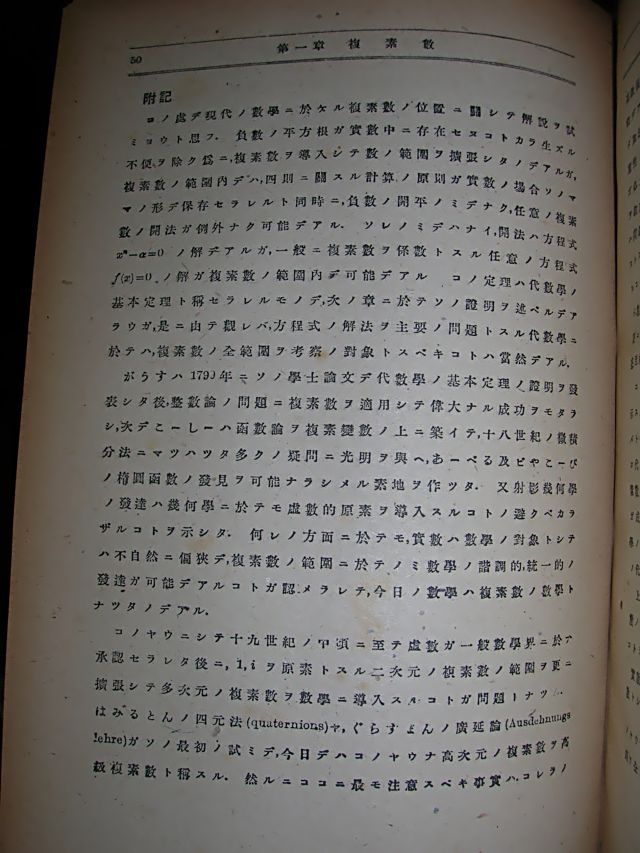 50
第一章 複素數
附記
コノ處デ現代ノ數學ニ於ケル複素數ノ位置ニ關シテ解說ヲ試
ミヨウト思フ. 負數ノ平方根ガ實數中ニ存在セヌコトカラ生ズル
不便ヲ除ク爲ニ,複素數ヲ導入シテ數ノ範圍ヲ擴張シタノデアルガ,
複素數ノ範圍內デハ,四則ニ關スル計算ノ原則ガ實數ノ場合ソノマ
マノ形デ保存セラレルト同時ニ,負數ノ開平ノミデナク,任意ノ複素
數ノ開法ガ例外ナク可能デアル. ソレノミデハナイ,開法ハ方程式
xⁿ−α=0 ノ解デアルガ,一般ニ複素數ヲ係數トスル任意ノ方程式
f(x)=0 ノ解ガ複素數ノ範圍內デ可能デアル コノ定理ハ代數學ノ
基本定理ト稱セラレルモノデ,次ノ章ニ於テソノ證明ヲ述ベルデア
ラウガ,是ニ由テ觀レバ,方程式ノ解法ヲ主要ノ問題トスル代數學ニ
於テハ,複素數ノ全範圍ヲ考察ノ對象トスベキコトハ當然デアル.
がうすハ 1799 年ニソノ學士論文デ代數學ノ基本定理ノ證明ヲ發
表シタ後,整數論ノ問題ニ複素數ヲ適用シテ偉大ナル成功ヲモタラ
シ,次デこーしーハ函數論ヲ複素變數ノ上ニ築イテ,十八世紀ノ微積
分法ニマツハツタ多クノ疑問ニ光明ヲ與へ,あーべる及ビやこーび
ノ楕圓函數ノ發見ヲ可能ナラシメル素地ヲ作ツタ. 又射影幾何學
ノ發達ハ幾何學ニ於テモ虛數的原素ヲ導入スルコトノ避クベカラ
ザルコトヲ示シタ. 何レノ方面ニ於テモ,實數ハ數學ノ對象トシテ
ハ不自然ニ偏狹デ,複素數ノ範圍ニ於テノミ數學ノ諧調的,統一的ノ
發達ガ可能デアルコトガ認メラレテ,今日ノ數學ハ複素數ノ數學ト
ナツタノデアル.
コノヤウニシテ十九世紀ノ中頃ニ至テ虛數ガ一般數學界ニ於テ
承認セラレタ後ニ, 1, i ヲ原素トスル二次元ノ複素數ノ範圍ヲ更ニ
擴張シテ多次元ノ複素數ヲ數學ニ導入スルコトガ問題トナツ
はみるとんノ四元法(quaternions)ヤ,ぐらすまんノ廣延論(Ausdehnungs
lehre)ガソノ最初ノ試ミデ,今日デハコノヤウナ高次元ノ複素數ヲ高
級複素數ト稱スル. 然ルニココニ最モ注意スベキ事實ハ,コレラノ